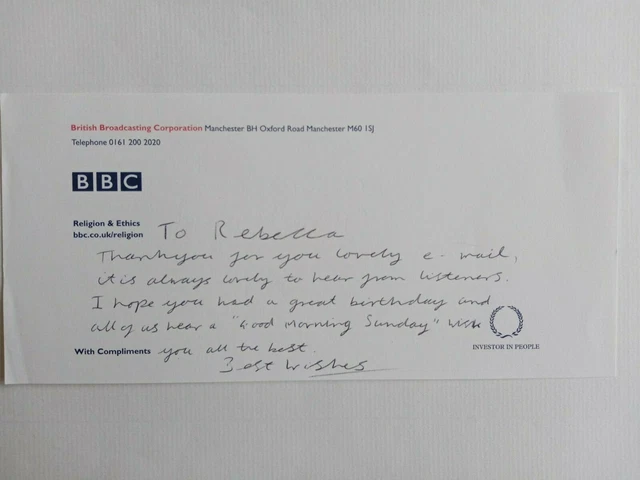 British Broadcasting Corporation Manchester BH Oxford Road Manchester M60 1SJ
Telephone 0161 200 2020
BBC
Religion & Ethics
bbc.co.uk/religion
To Rebecca
Thankyou for you lovely e-mail,
it is always lovely to hear from listeners.
I hope you had a great birthday and
all of us hear a "Good Morning Sunday" wish
INVESTOR IN PEOPLE
With Compliments you all the best.
Best Wishes